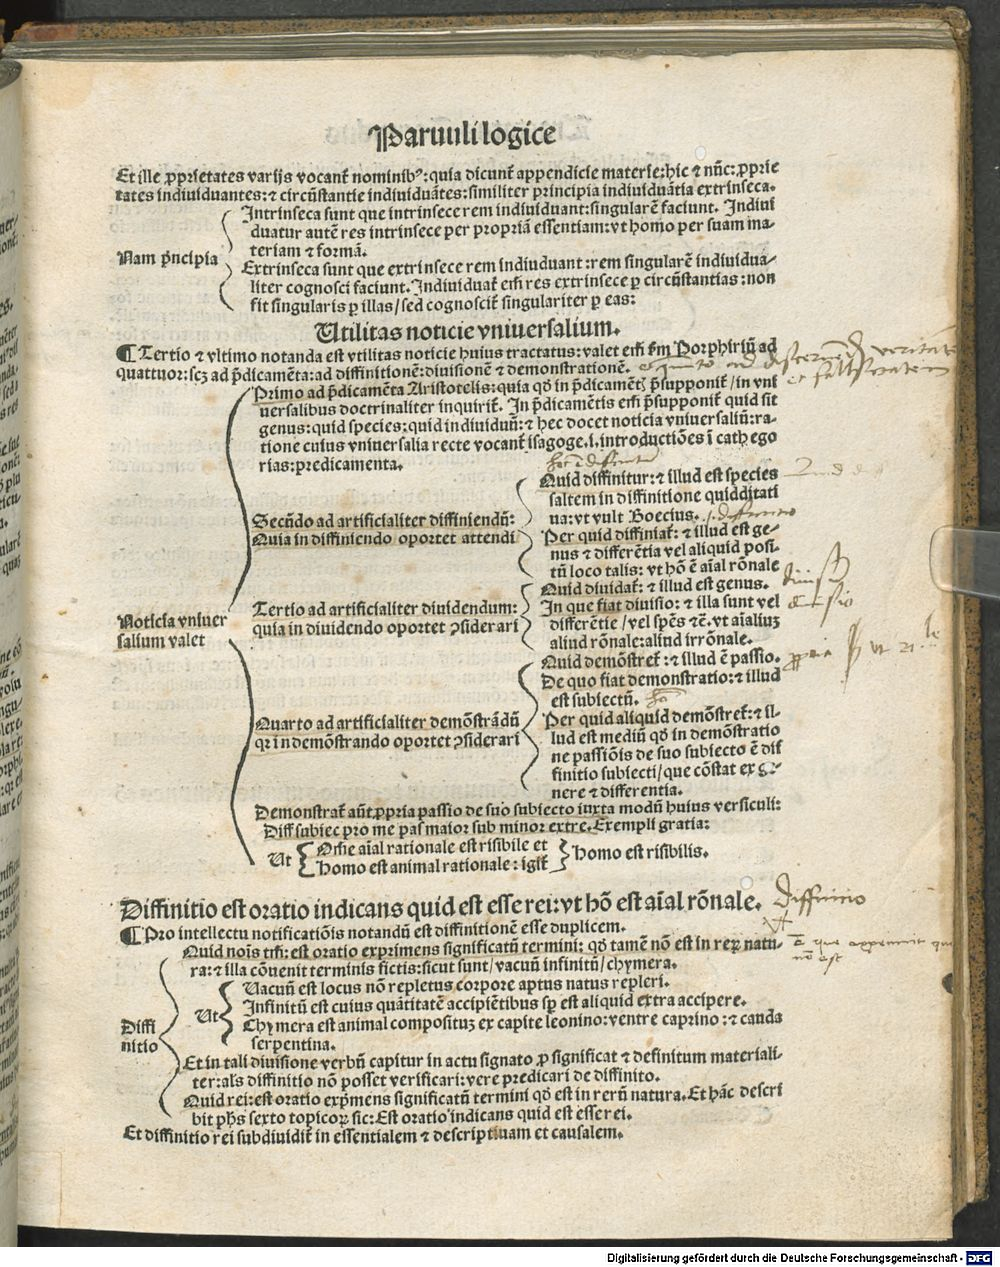 Paruuli logice
Et ille ꝓprietates varijs vocant̃ nominibꝰ: quia dicunt̃ appendicie materie: hic ⁊ nũc: ꝓprie
tates indiuiduantes: ⁊ circũstantie indiuiduãtes: similiter principia indiuiduãtia extrinseca.
Nam pͥncipia
Intrinseca sunt que intrinsece rem indiuiduant: singularẽ faciunt. Indiui
duatur autẽ res intrinsece per propriã essentiam: vt homo per suam ma-
teriam ⁊ formã.
Extrinseca sunt que extrinsece rem indiuduant: rem singularẽ indiuidua-
liter cognosci faciunt. Indiuiduat̃ em̃ res extrinsece ꝑ circũstantias: non
fit singularis ꝑ illas/ sed cognoscit̃ singulariter ꝑ eas:
Utilitas noticie vniuersalium.
¶ Tertio ⁊ vltimo notanda est vtilitas noticie huius tractatus: valet em̃ ẝm Porphiriũ ad
quattuor: scꝫ ad p̃dicamẽta: ad diffinitionẽ: diuisionẽ ⁊ demonstrationẽ.
Noticia vniuer
salium valet
Primo ad p̃dicamẽta Aristotelis: quia qõ in p̃dicamẽtꝭ p̃supponit̃/ in vni
uersalibus doctrinaliter inquirit̃. In p̃dicamẽtis em̃ p̃supponit̃ quid sit
genus: quid species: quid indiuiduũ: ⁊ hec docet noticia vniuersaliũ: ra-
tione cuius vniuersalia recte vocant̃ isagoge .i. introductiões ĩ cathego
rias: predicamenta.
Secũdo ad artificialiter diffiniendũ:
Quia in diffiniendo oportet attendi
Quid diffinitur: ⁊ illud est species
saltem in diffinitione quidditati
ua: vt vult Boecius.
Per quid diffiniat̃: ⁊ illud est ge-
nus ⁊ differẽtia vel aliquid posi-
tũ loco talis: vt hõ ẽ aĩal rõnale
Tertio ad artificialiter diuidendum:
quia in diuidendo oportet ꝯsiderari
Quid diuidat̃: ⁊ illud est genus.
In que fiat diuisio: ⁊ illa sunt vel
differẽtie/ vel spẽs ⁊c̃. vt aĩaliuꝫ
aliud rõnale: aliud irrõnale.
Quarto ad artificialiter demõstrãdũ
qꝛ in demõstrando oportet ꝯsiderari
Quid demõstret̃: ⁊ illud ẽ passio.
De quo fiat demonstratio: ⁊ illud
est subiectũ.
Per quid aliquid demõstret̃: ⁊ il-
lud est mediũ qõ in demõstratio
ne passiõis de suo subiecto ẽ dif
finitio subiecti/ que cõstat ex ge-
nere ⁊ differentia.
Demonstrat̃ aũt ꝓpria passio de suo subiecto iuxta modũ huius versiculi:
Diff subiec pro me pas maior sub minor extre. Exempli gratia:
Ut
Om̃e aĩal rationale est risibile et
Homo est animal rationale: igit̃
Homo est risibilis.
Diffinitio est oratio indicans quid est esse rei: vt hõ est aĩal rõnale.
diffinitio
¶ Pro intellectu notificatiõis notandũ est diffinitionẽ esse duplicem.
Diffi
nitio
Quid noĩs tm̃: est oratio exprimens significatũ termini: qõ tamẽ nõ est in reꝝ natu-
ra: ⁊ illa cõuenit terminis fictis: sicut sunt/ vacuũ infinitũ/ chymera.
Ut
Vacuũ est locus nõ repletus corpore aptus natus repleri.
Infinitũ est cuius quãtitatẽ accipiẽtibus sꝑ est aliquid extra accipere.
Chymera est animal composituꝫ ex capite leonino: ventre caprino: ⁊ cauda
serpentina.
Et in tali diuisione verbũ capitur in actu signato ꝓ significat ⁊ definitum materiali-
ter: als diffinitio nõ posset verificari: vere predicari de diffinito.
Quid rei: est oratio exp̃mens significatũ termini qõ est in rerũ natura. Et hãc descri
bit phs sexto topicoꝝ sic: Est oratio indicans quid est esse rei.
Et diffinitio rei subdiuidit̃ in essentialem ⁊ descriptiuam et causalem.
Digitalisierung gefördert durch die Deutsche Forschungsgemeinschaft - DFG